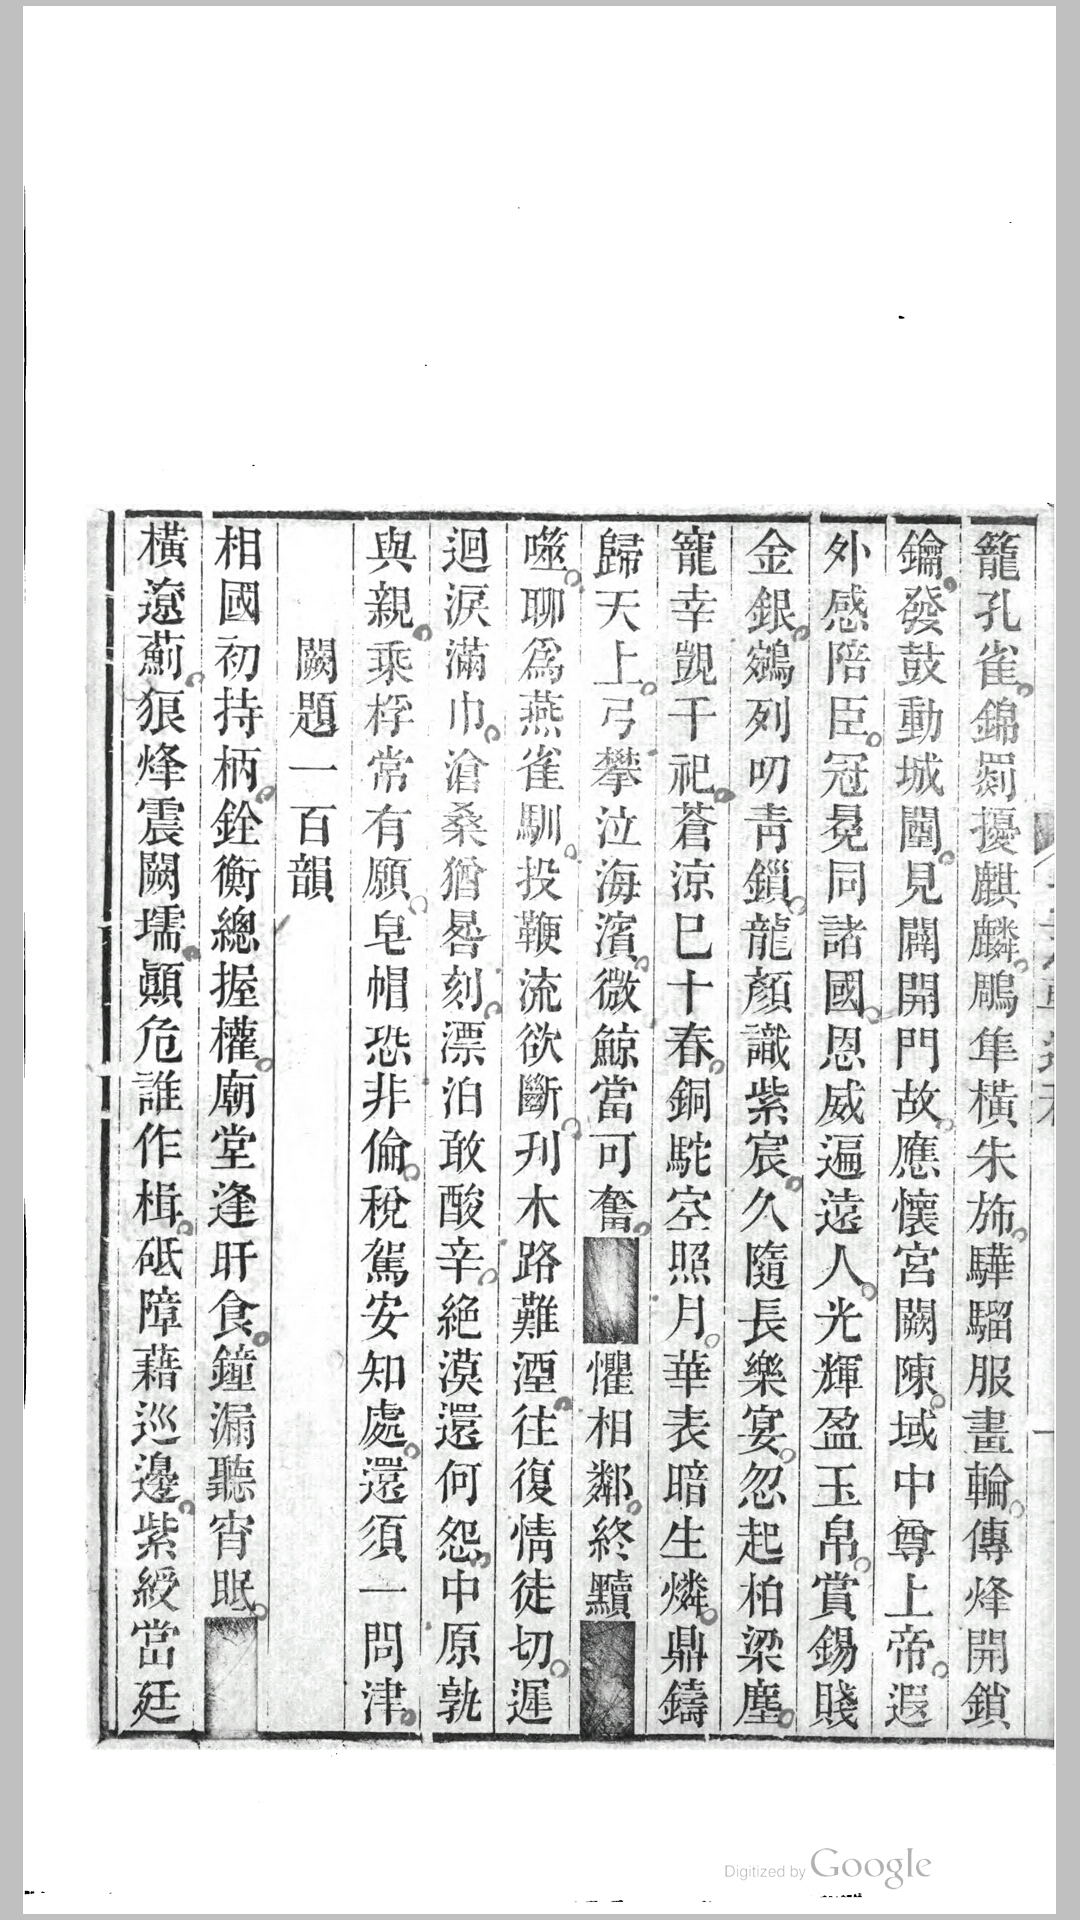 籠孔雀錦罽擾麒麟鵰隼橫朱斾驊騮服畫輪傳烽開鎖
鑰發鼓動城闉見闢開門故應懷宮闕陳域中尊上帝遐
外感陪臣冠冕同諸國恩威遍遠人光輝盈玉帛賞錫賤
金銀鵷列叨青鎖龍顏識紫宸久隨長樂宴忽起柏梁塵
寵幸覬干祀蒼涼已十春銅駝空照月華表暗生燐鼎鑄
歸天上弓攀泣海濱微鯨當可奮懼相鄰終黷
噬聊爲燕雀馴投鞭流欲斷刋木路難湮往復情徒切遲
迴淚滿巾滄桑猶晷刻漂泊敢酸辛絕漠還何怨中原孰
與親乘桴常有願皂帽恐非倫稅駕安知處還須一問津
闕題一百韻
相國初持柄銓衡總握權廟堂逢旰食鐘漏聽宵眠
橫遼薊狼烽震闕壖顚危誰作楫砥障藉巡邊紫綬當廷
Digitized by Google